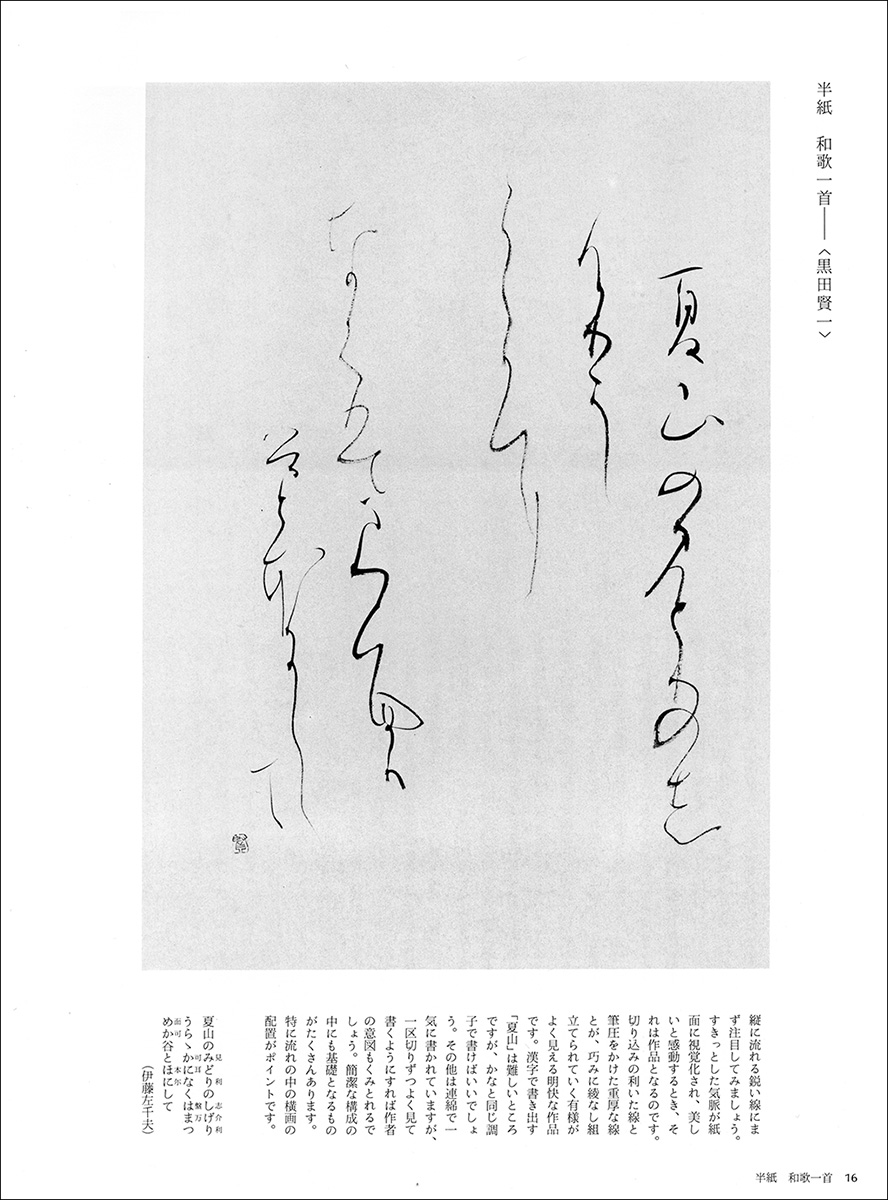 半紙 和歌一首――〈黒田賢一〉
縦に流れる鋭い線にま
ず注目してみましょう。
すきっとした気脈が紙
面に視覚化され、美し
いと感動するとき、そ
れは作品となるのです。
切り込みの利いた線と
筆圧をかけた重厚な線
とが、巧みに綾なし組
立てられていく有様が
よく見える明快な作品
です。漢字で書き出す
「夏山」は難しいところ
ですが、かなと同じ調
子で書けばいいでしょ
う。その他は連綿で一
気に書かれていますが、
一区切りずつよく見て
書くようにすれば作者
の意図もくみとれるで
しょう。簡潔な構成の
中にも基礎となるもの
がたくさんあります。
特に流れの中の横画の
配置がポイントです。
見 利 志介利
夏山のみどりのしげり
可耳 盤万
うらゝかになくはまつ
面可 本尓
めか谷とほにして
（伊藤左千夫）
半紙 和歌一首 16